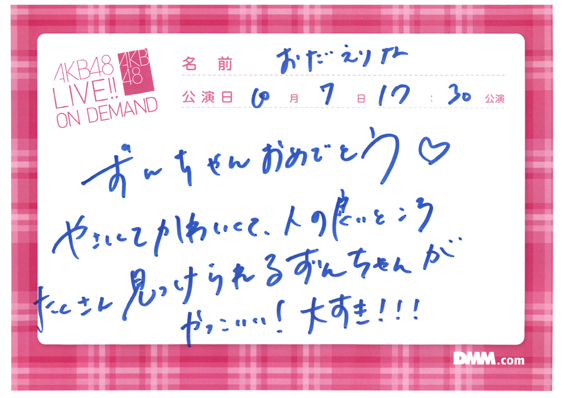 AKB48
LIVE!!
ON DEMAND
AKB
48
名前 おだえりな
公演日 10月7日 17:30公演
ずんちゃんおめでとう♡
やさしくてかわいくて、人の良いところ
たくさん見つけられるずんちゃんが
かっこいい!大すき!!!
DMM.com